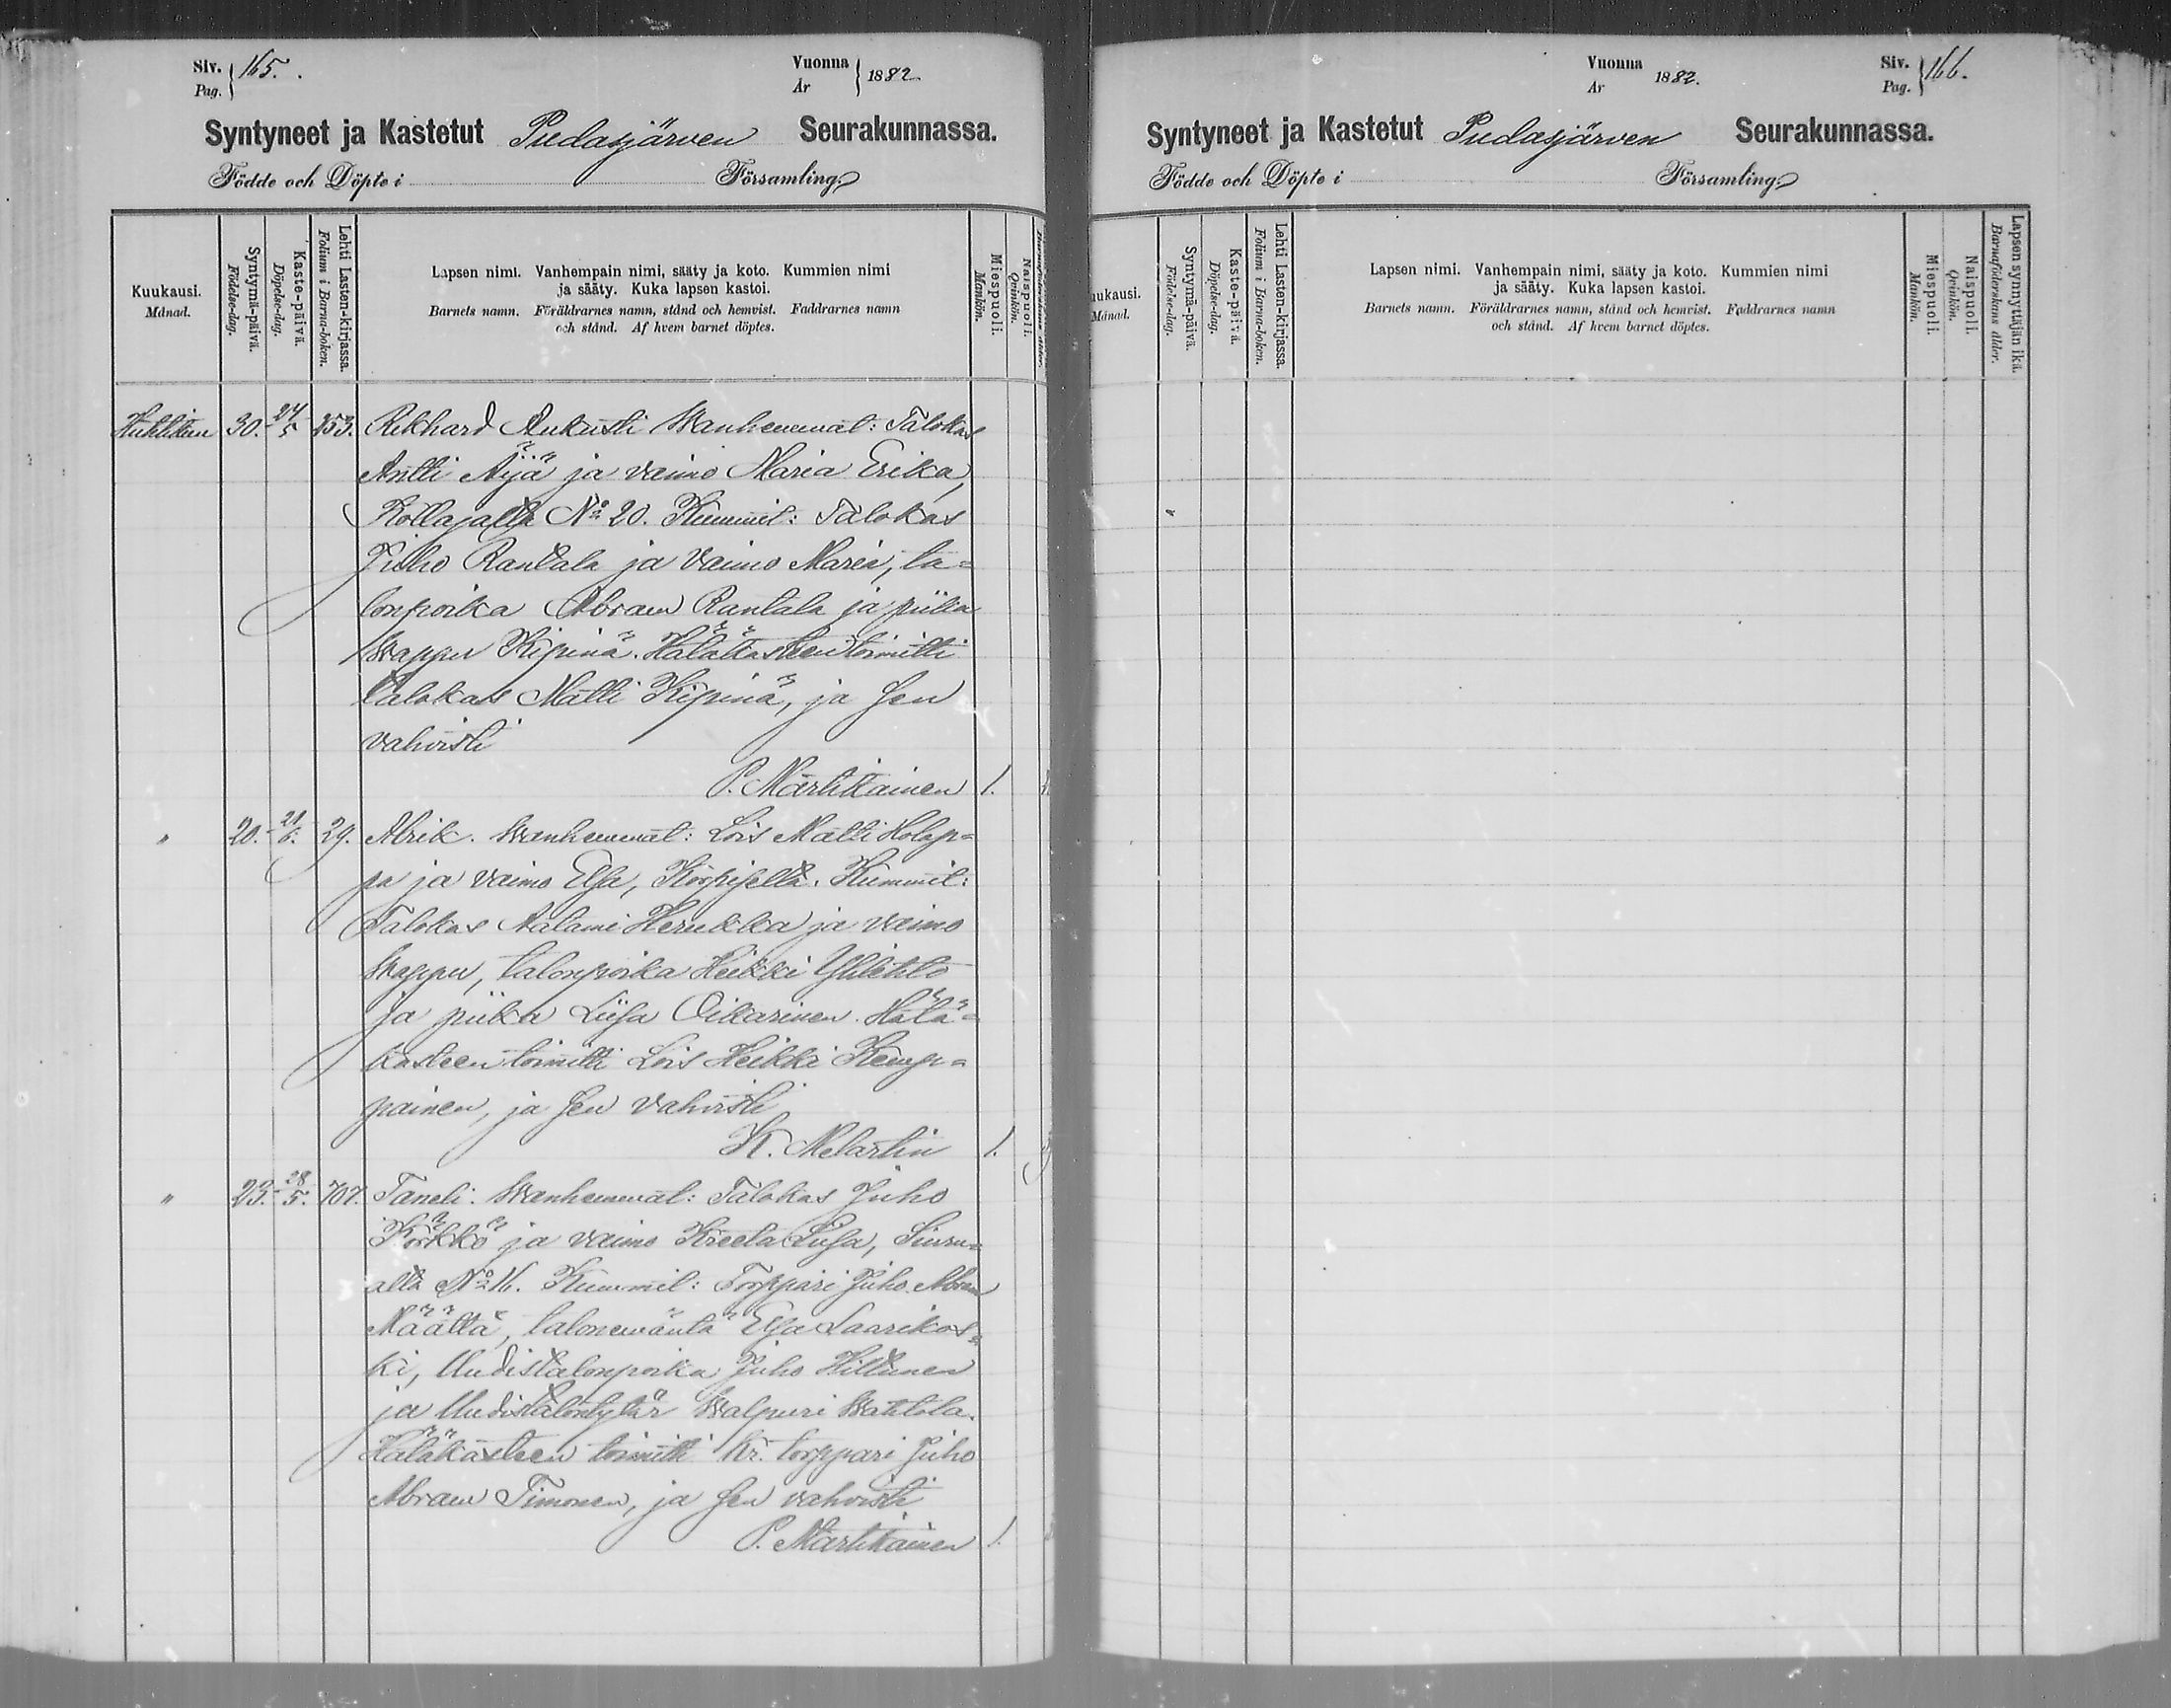 Siv. 165. Vuonna 1882
Pag. År
Syntyneet ja Kastetut Pudasjärven Seurakunnassa.
Födde och Döpte i Församling.
Kuukausi. Månad.
Syntymä-päivä. Födelse-dag.
Kaste-päivä. Döpelse-dag.
Lehti Lasten-kirjassa. Folium i Barna-boken.
Lapsen nimi. Vanhempain nimi, sääty ja koto. Kummien nimi
ja sääty. Kuka lapsen kastoi.
Barnets namn. Föräldrarnes namn, stånd och hemvist. Faddrarnes namn
och stånd. Af hvem barnet döptes.
Miespuoli. Mankön.
Naispuoli. Qvinkön.
Huhtikuu 30. 24/5 453. Rikhard Aukusti Wanhemmat: Talokas
Antti Äijä ja vaimo Maria Erika,
Kollajalta No 20. Kummit: Talokas
Juho Rantala ja vaimo Maria, ta=
lonpoika Abram Rantala ja piika
Wappu Kipinä. Hätäkasteen toimitti
talokas Matti Kipinä, ja sen
vahvisti
P. Martikainen 1.
" 20. 21/6. 29. Abrik. Wanhemmat: Lois Matti Holap=
pa ja vaimo Elsa, Korpijellä. Kummit:
Talokas Aatami Herukka ja vaimo
Wappu, talonpoika Heikki Ylilehto
ja piika Liisa Oikarinen. Hätä=
kasteen toimitti Lois Heikki Kemp=
painen, ja sen vahvisti
K. Melartin 1.
" 23. 28/5. 707. Taneli. Wanhemmat: Talokas Juho
Körkkö ja vaimo Kreeta Liisa, Siuru=
alta No 16. Kummit: Torppari Juho Abram
Määttä, talonemäntä Elsa Laarikos=
ki, Uudistalonpoika Juho Hiltunen
ja Uudistalontytär Walpuri Wattola.
Hätäkasteen toimitti kr. torppari Juho
Abram Timonen, ja sen vahvisti
P. Martikainen 1.
Vuonna 1882. Siv. 166.
År Pag.
Syntyneet ja Kastetut Pudasjärven Seurakunnassa.
Födde och Döpte i Församling.
uukausi. Månad.
Syntymä-päivä. Födelse-dag.
Kaste-päivä. Döpelse-dag.
Lehti Lasten-kirjassa. Folium i Barna-boken.
Lapsen nimi. Vanhempain nimi, sääty ja koto. Kummien nimi
ja sääty. Kuka lapsen kastoi.
Barnets namn. Föräldrarnes namn, stånd och hemvist. Faddrarnes namn
och stånd. Af hvem barnet döptes.
Miespuoli. Mankön.
Naispuoli. Qvinkön.
Lapsen synnyttäjän ikä. Barnaföderskans ålder.